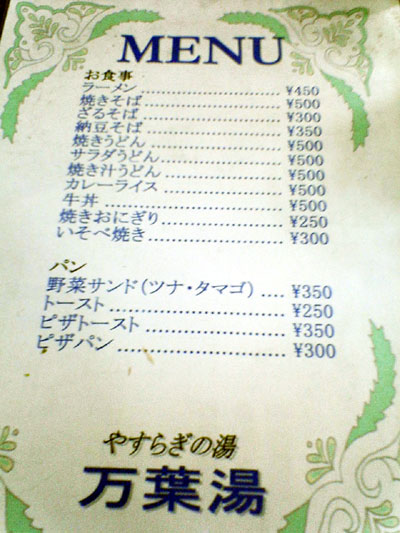 MENU
お食事
ラーメン ¥450
焼きそば ¥500
ざるそば ¥300
納豆そば ¥350
焼きうどん ¥500
サラダうどん ¥500
焼き汁うどん ¥500
カレーライス ¥500
牛丼 ¥500
焼きおにぎり ¥250
いそべ焼き ¥300
パン
野菜サンド(ツナ・タマゴ) ¥350
トースト ¥250
ピザトースト ¥350
ピザパン ¥300
やすらぎの湯
万葉湯